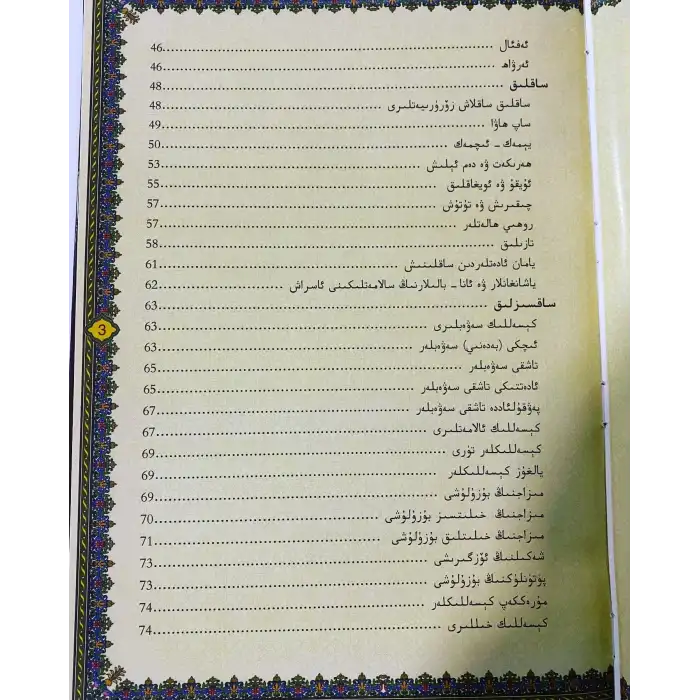 ئەفئال ........ 46
ئەرۋاھ ........ 46
ساقلىق ........ 48
ساقلىق ساقلاش زۆرۈرىيەتلىرى ........ 48
ساپ ھاۋا ........ 49
يېمەك - ئىچمەك ........ 50
ھەرىكەت ۋە دەم ئېلىش ........ 53
ئۇيقۇ ۋە ئويغاقلىق ........ 55
چىقىرىش ۋە تۇتۇش ........ 57
روھىي ھالەتلەر ........ 57
تازىلىق ........ 58
يامان ئادەتلەردىن ساقلىنىش ........ 61
ياشانغانلار ۋە ئانا - بالىلارنىڭ سالامەتلىكىنى ئاسراش ........ 62
ساقسىزلىق ........ 63
كېسەللىك سەۋەبلىرى ........ 63
ئىچكى (بەدەنىي) سەۋەبلەر ........ 63
تاشقى سەۋەبلەر ........ 65
ئادەتتىكى تاشقى سەۋەبلەر ........ 65
پەۋقۇلئاددە تاشقى سەۋەبلەر ........ 67
كېسەللىك ئالامەتلىرى ........ 67
كېسەللىكلەر تۈرى ........ 69
يالغۇز كېسەللىكلەر ........ 69
مىزاجنىڭ بۇزۇلۇشى ........ 69
مىزاجنىڭ خىلىتسىز بۇزۇلۇشى ........ 70
مىزاجنىڭ خىلىتلىق بۇزۇلۇشى ........ 71
شەكىلنىڭ ئۆزگىرىشى ........ 73
پۈتۈنلۈكنىڭ بۇزۇلۇشى ........ 73
مۇرەككەپ كېسەللىكلەر ........ 74
كېسەللىك خىللىرى ........ 74
3